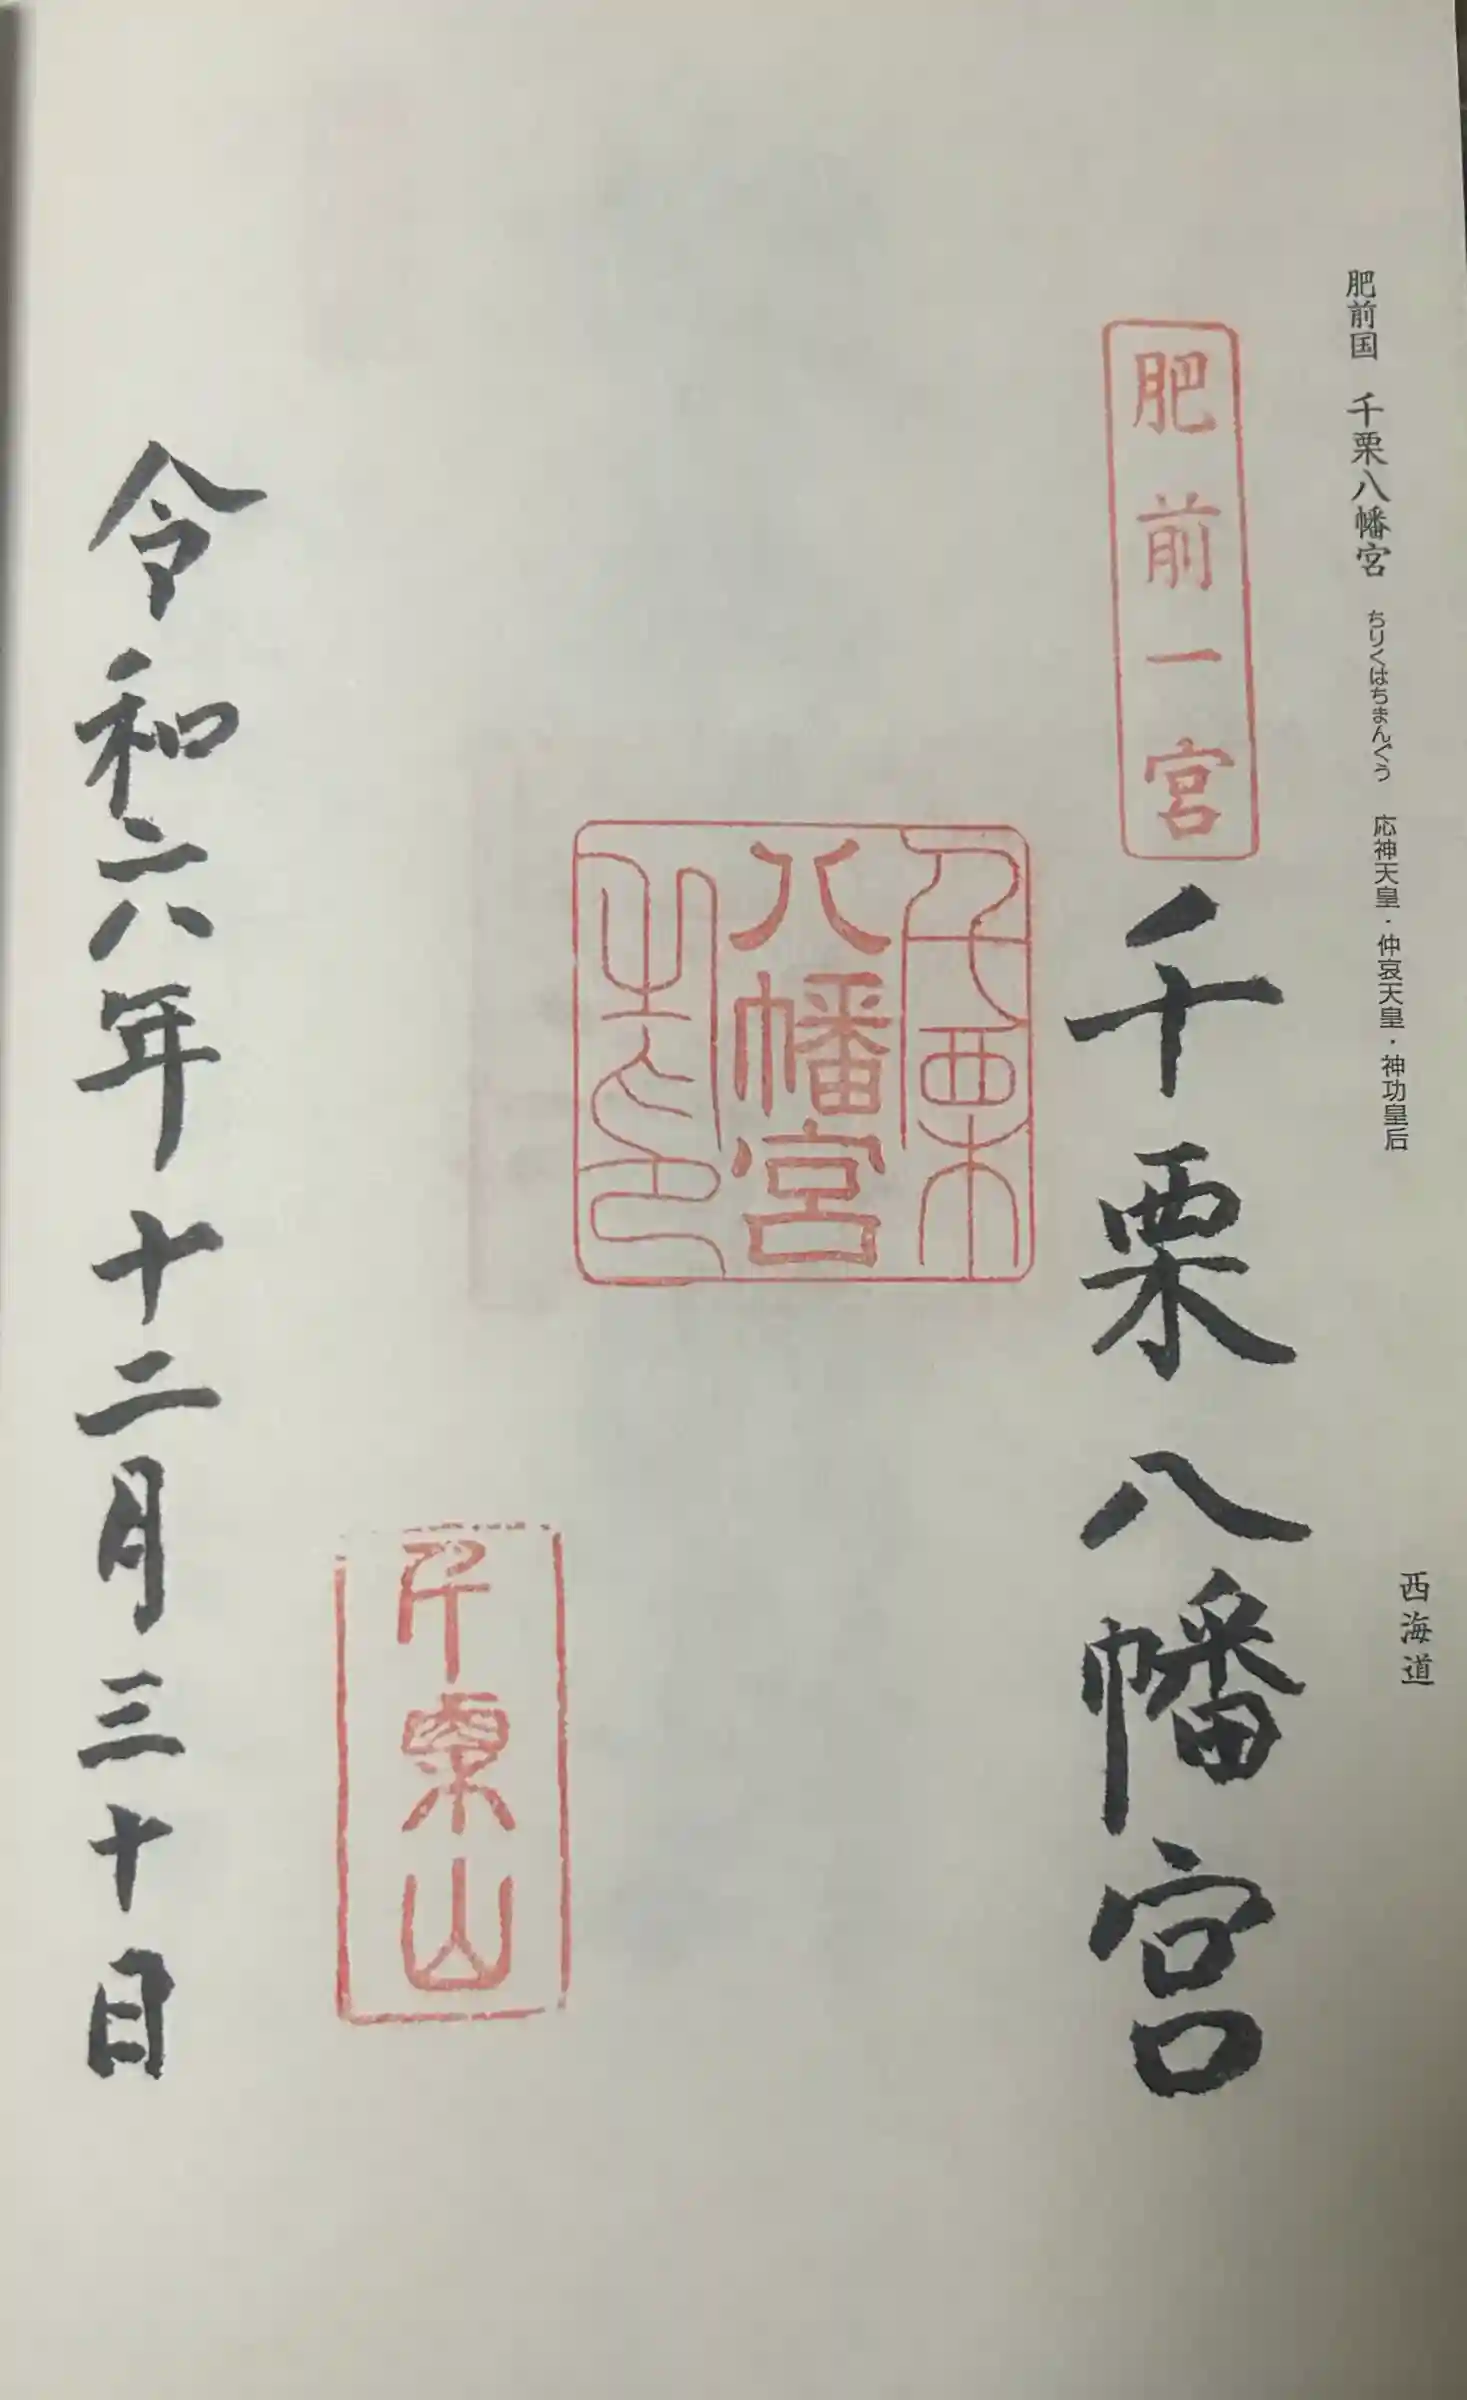 肥前国 千栗八幡宮 ちりくはちまんぐう 応神天皇・仲哀天皇・神功皇后 西海道
肥前一宮
千栗八幡宮
千栗
八幡宮
之印
千栗山
令和六年十二月三十日